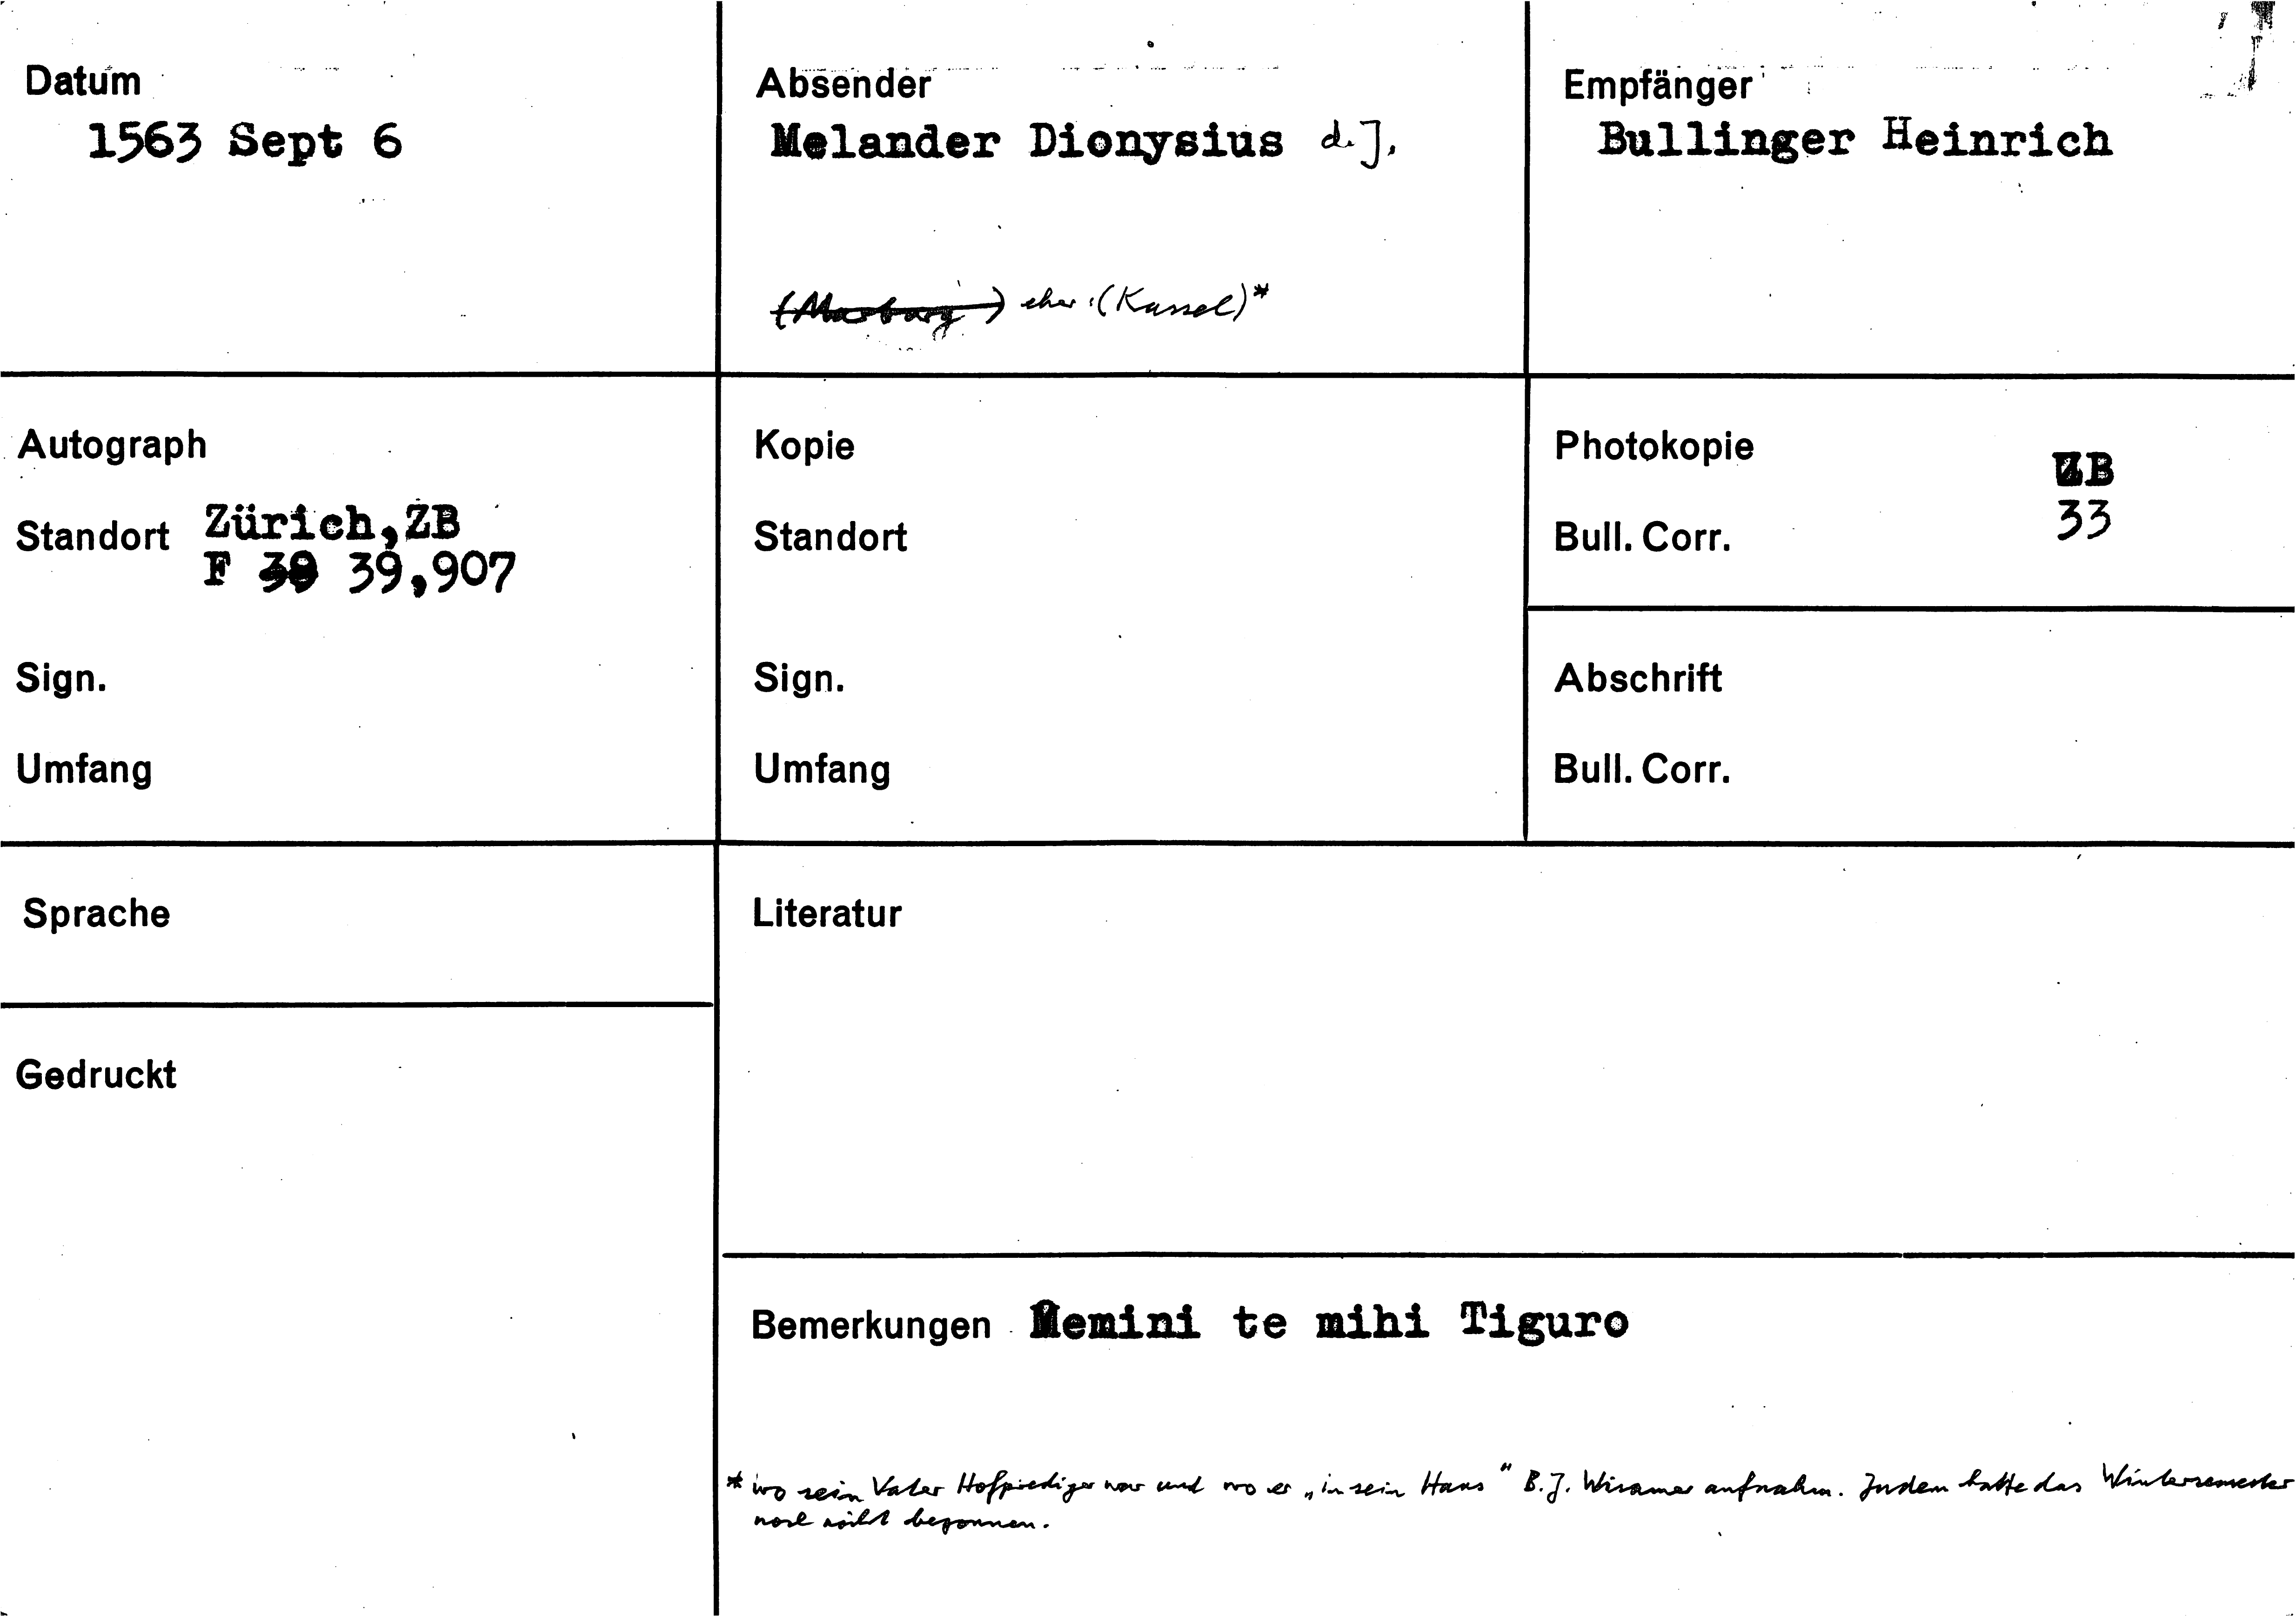 Datum
1563 Sept 6
Absender
Melander Dionysius d. J.
(Marburg) eher: (Kassel)*
Empfänger
Bullinger Heinrich
Autograph
Standort Zürich, ZB
F 39,907
Sign.
Umfang
Kopie
Standort
Sign.
Umfang
Photokopie
ZB
Bull. Corr. 33
Abschrift
Bull. Corr.
Sprache
Gedruckt
Literatur
Bemerkungen Memini te mihi Tiguro
* wo sein Vater Hofprediger war und wo er „in sein Haus" B. J. aufnahm. Zudem hatte das Wintersemester
noch nicht begonnen.